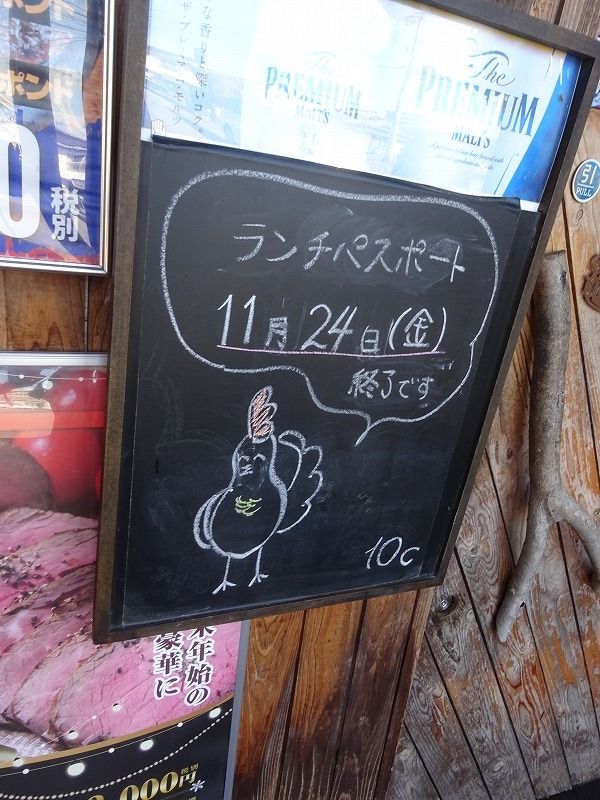 ポンド
ポンド
0
税別
な香りと深いコク。
ザ・プレミアム・モルツ
The
PREMIUM
MALT'S
The
PREMIUM
MALT'S
引
PULL
ランチパスポート
11月24日(金)
終了です
10c
末年始の
豪華に
,000円
税別